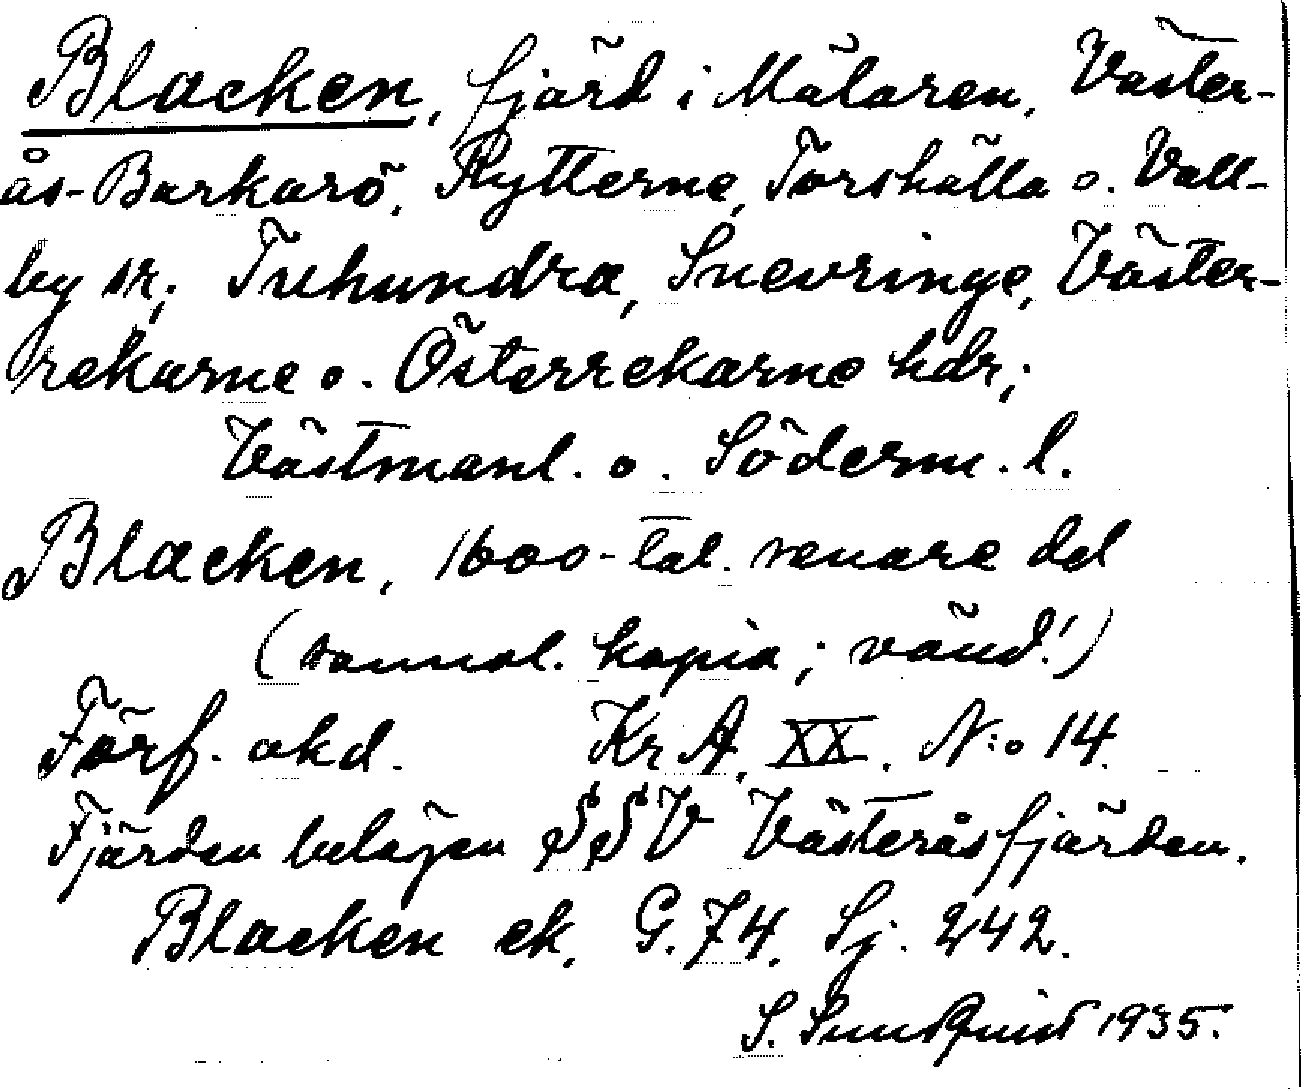 Blacken, fjärd i Mälaren, Väster-
ås-Barkarö, Rytterne, Torshälla o. Vall-
by sn; Tuhundra, Snevringe, Väster-
rekarne o. Österrekarne hdr;
Västmanl. o. Söderm. l.
Blacken, 1600-tal. senare del
(sannol. kopia; vänd!)
Förf. okd. Kr A, XX. N:o 14.
Fjärden belägen SSV Västeråsfjärden.
Blacken ek. G. 74. Sj. 242.
S. Sundquist 1935.